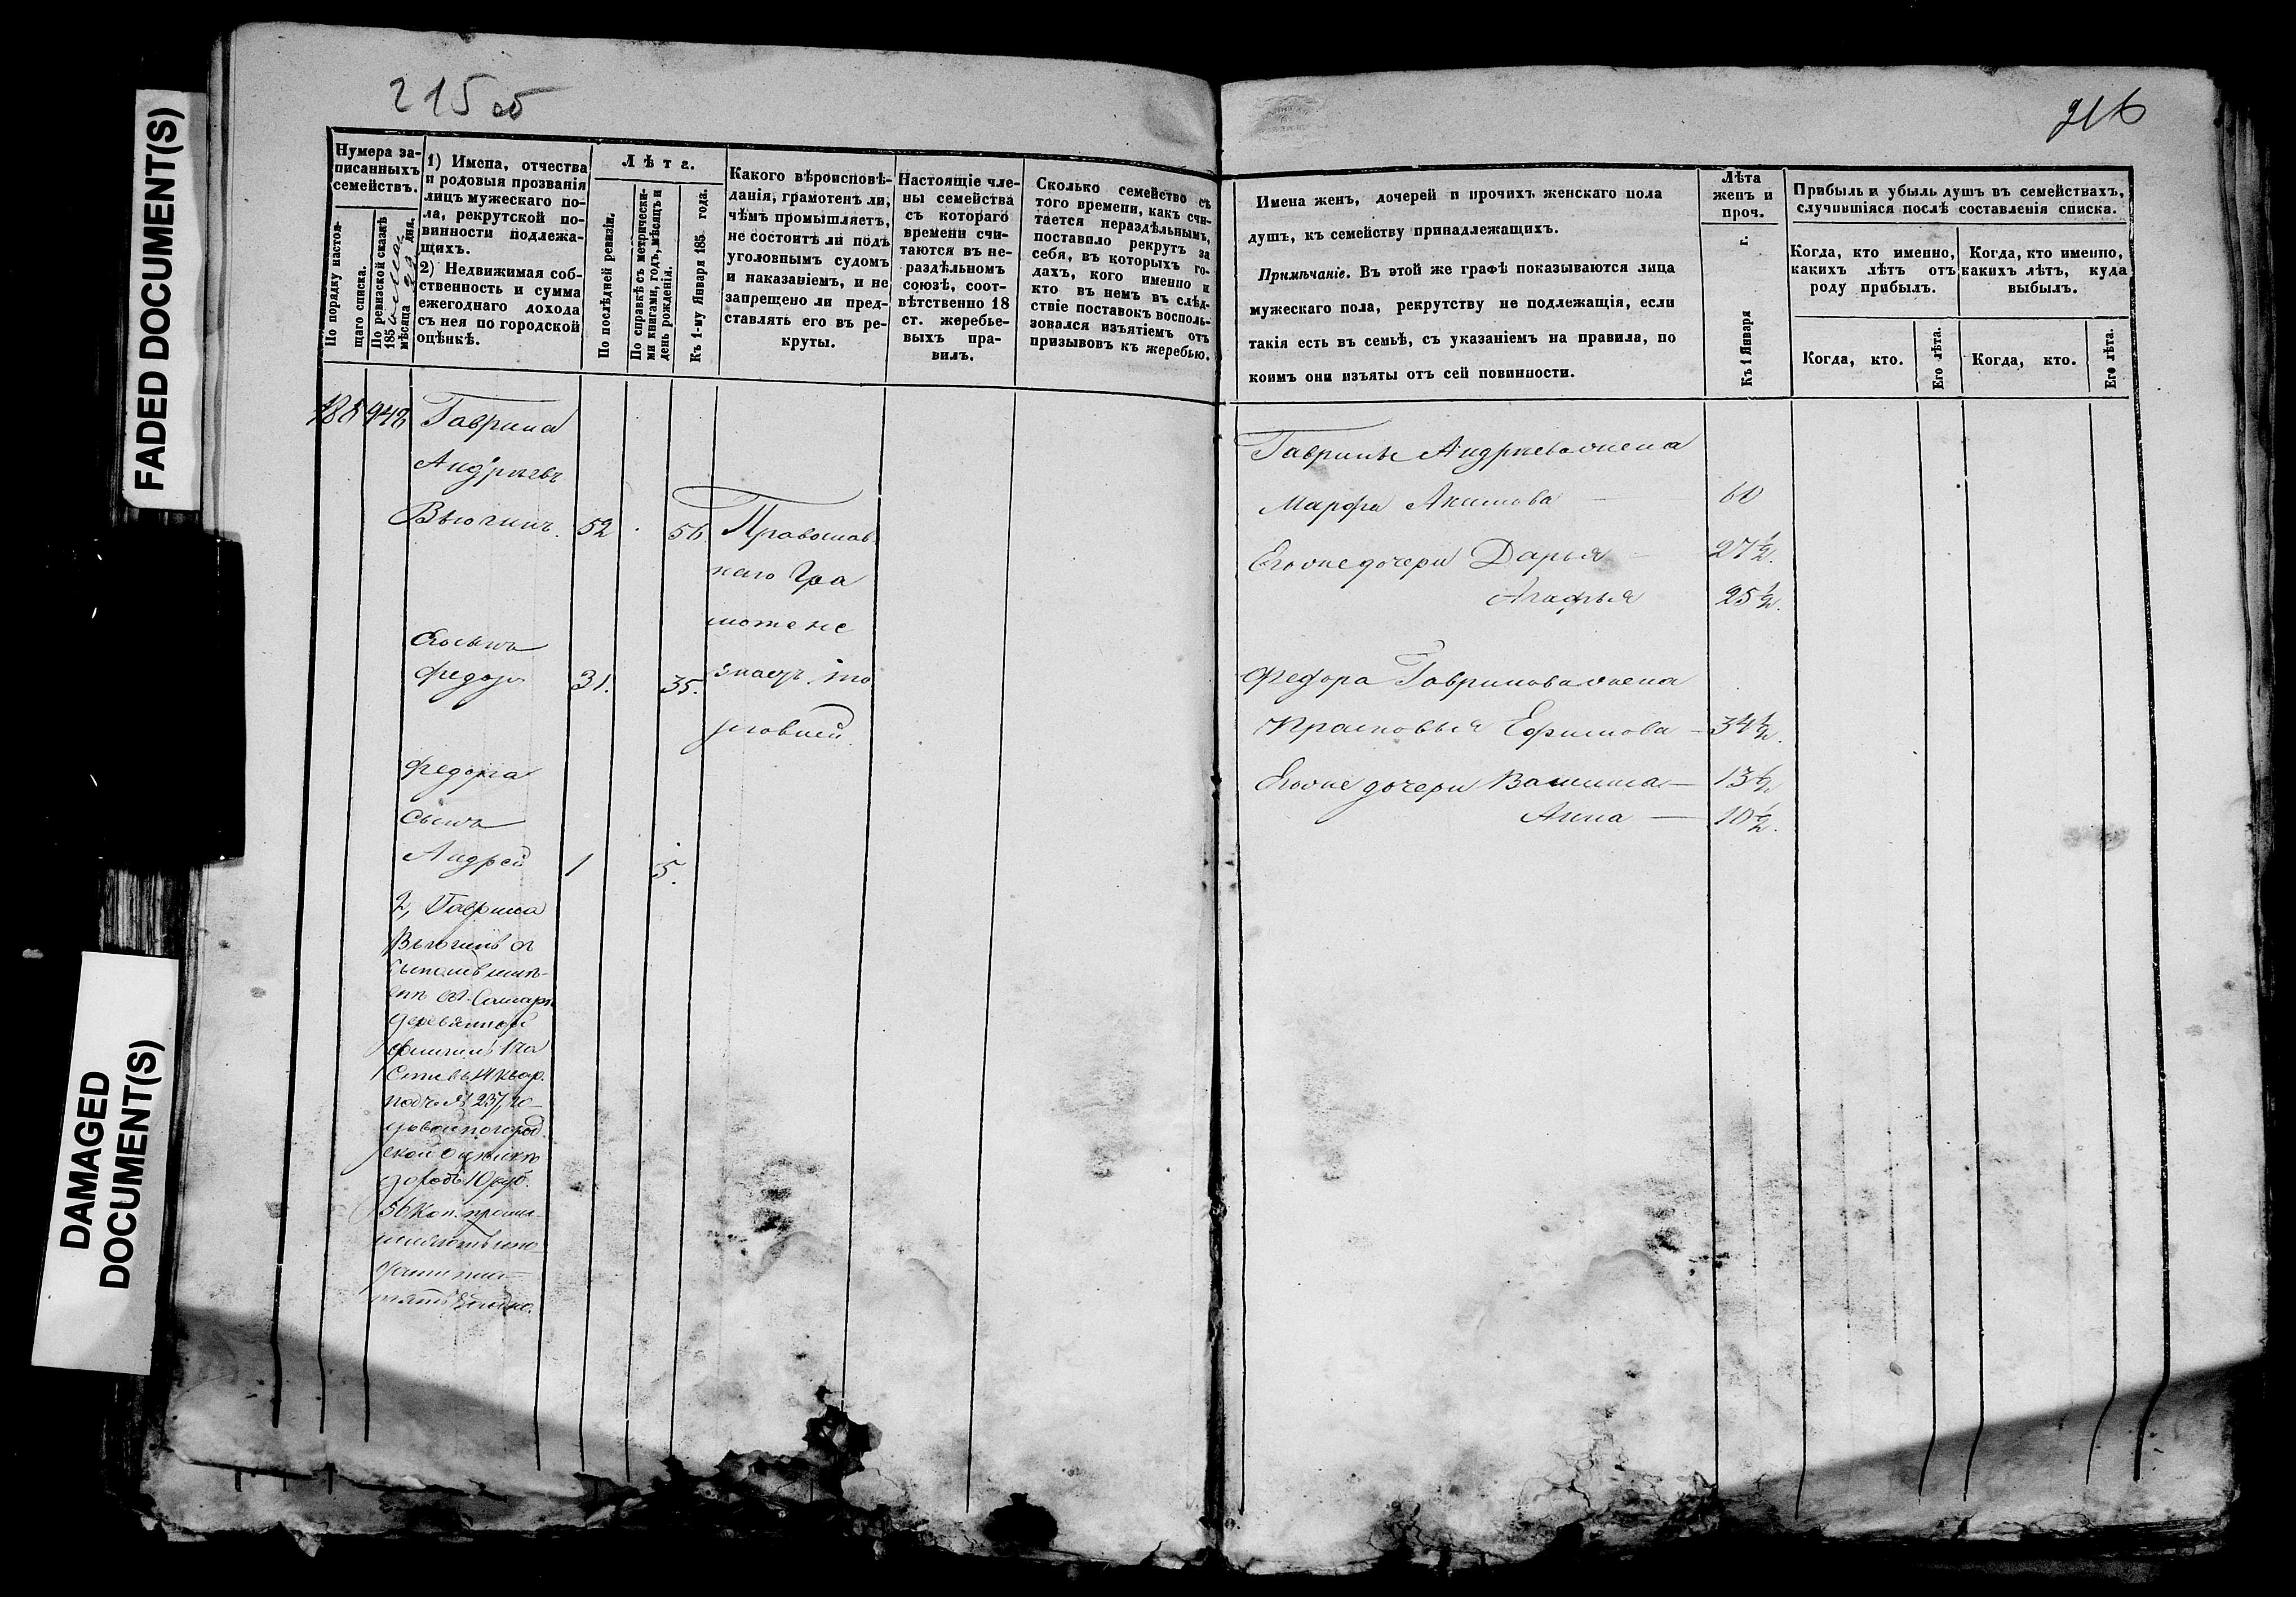 FADED DOCUMENT(S)
DAMAGED
DOCUMENT(S)
215 об
Нумера за-
писанныхъ
семействъ.
По порядку настоя-
щаго списка.
По ревизской сказкѣ
185
мѣсяца дня.
1) Имена, отчества
и родовыя прозванія
лицъ мужескаго по-
ла, рекрутской по-
винности подлежа-
щихъ.
2) Недвижимая соб-
ственность и сумма
ежегоднаго дохода
съ нея по городской
оцѣнкѣ.
Лѣта.
По послѣдней ревизіи.
По справкѣ съ метрически-
ми книгами, годъ, мѣсяцъ и
день рожденія.
Къ 1-му Января 185 года.
Какого вѣроисповѣ-
данія, грамотенъ ли,
чѣмъ промышляетъ,
не состоитъ ли подъ
уголовнымъ судомъ
и наказаніемъ, и не
запрещено ли пред-
ставлять его въ ре-
круты.
Настоящіе чле-
ны семейства
съ котораго
времени счи-
таются въ не-
раздѣльномъ
союзѣ, соот-
вѣтственно 18
ст. жеребье-
выхъ пра-
вилъ.
Сколько семейство съ
того времени, какъ счи-
тается нераздѣльнымъ,
поставило рекрутъ за
себя, въ которыхъ го-
дахъ, кого именно и
кто въ немъ въ слѣд-
ствіе поставокъ восполь-
зовался изъятіемъ отъ
призывовъ къ жеребью.
948
Гаврила
Андреевъ
Вьюгинъ. 52 56
Православ
наго Гра
моте не
знаетъ. то
рговлей
Его сынъ
Федоръ 31. 35.
Федора
сынъ
Андрей 1 5.
2, Гаврила
Вьюгинъ
сыномъ
Самаре
деревянной
флигель 1 ча
сти въ 14 квар.
подъ № 237, го-
довой по город
ской оцѣнкѣ
доходъ 10 руб.
56 Коп.
216
Имена женъ, дочерей и прочихъ женскаго пола
душъ, къ семейству принадлежащихъ.
Примѣчаніе. Въ этой же графѣ показываются лица
мужескаго пола, рекрутству не подлежащія, если
такія есть въ семьѣ, съ указаніемъ на правила, по
коимъ они изъяты отъ сей повинности.
Лѣта
женъ и
проч.
Къ 1 Января г.
Прибыль и убыль душъ въ семействахъ,
случившіяся послѣ составленія списка.
Когда, кто именно,
какихъ лѣтъ отъ
роду прибылъ.
Когда, кто именно,
какихъ лѣтъ, куда
выбылъ.
Когда, кто.
Его лѣта.
Когда, кто.
Его лѣта.
Гаврилы Андреева жена
Марфа Акимова — 60
Его же дочери Дарья — 27 1/2.
Агафья 25 1/2.
Федора Гаврилова жена
Прасковья Ефимова — 34 1/2.
Его же дочери — 13 1/2.
Анна — 10 1/2.